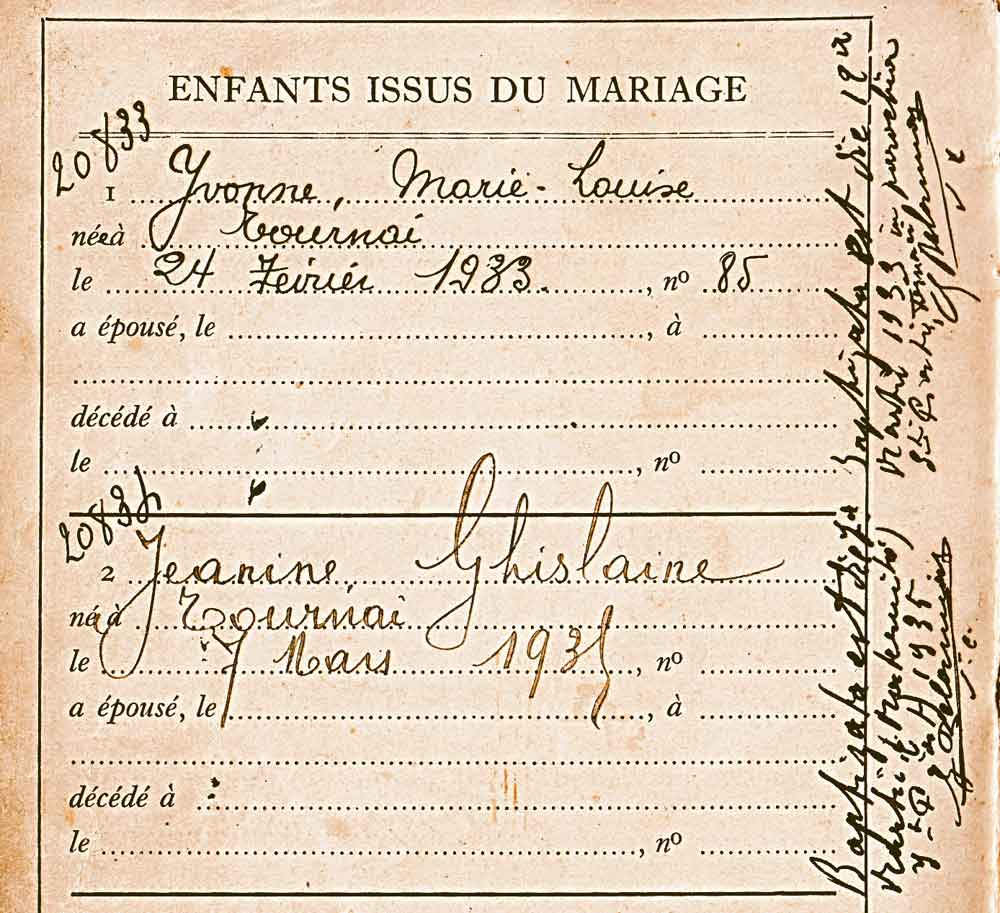 ENFANTS ISSUS DU MARIAGE
20833
1 Yvonne, Marie-Louise
née à Tournai
le 24 Février 1933. , nº 85
a épousé, le , à
décédé à
le , nº
20834
2 Jeanine, Ghislaine
née à Tournai
le 7 Mars 1935 , nº
a épousé, le , à
décédé à
le , nº
Baptizata est die 12a
Martii 1933 in parochia
Baptizata est die 7a
Martii (Maternité)
1935